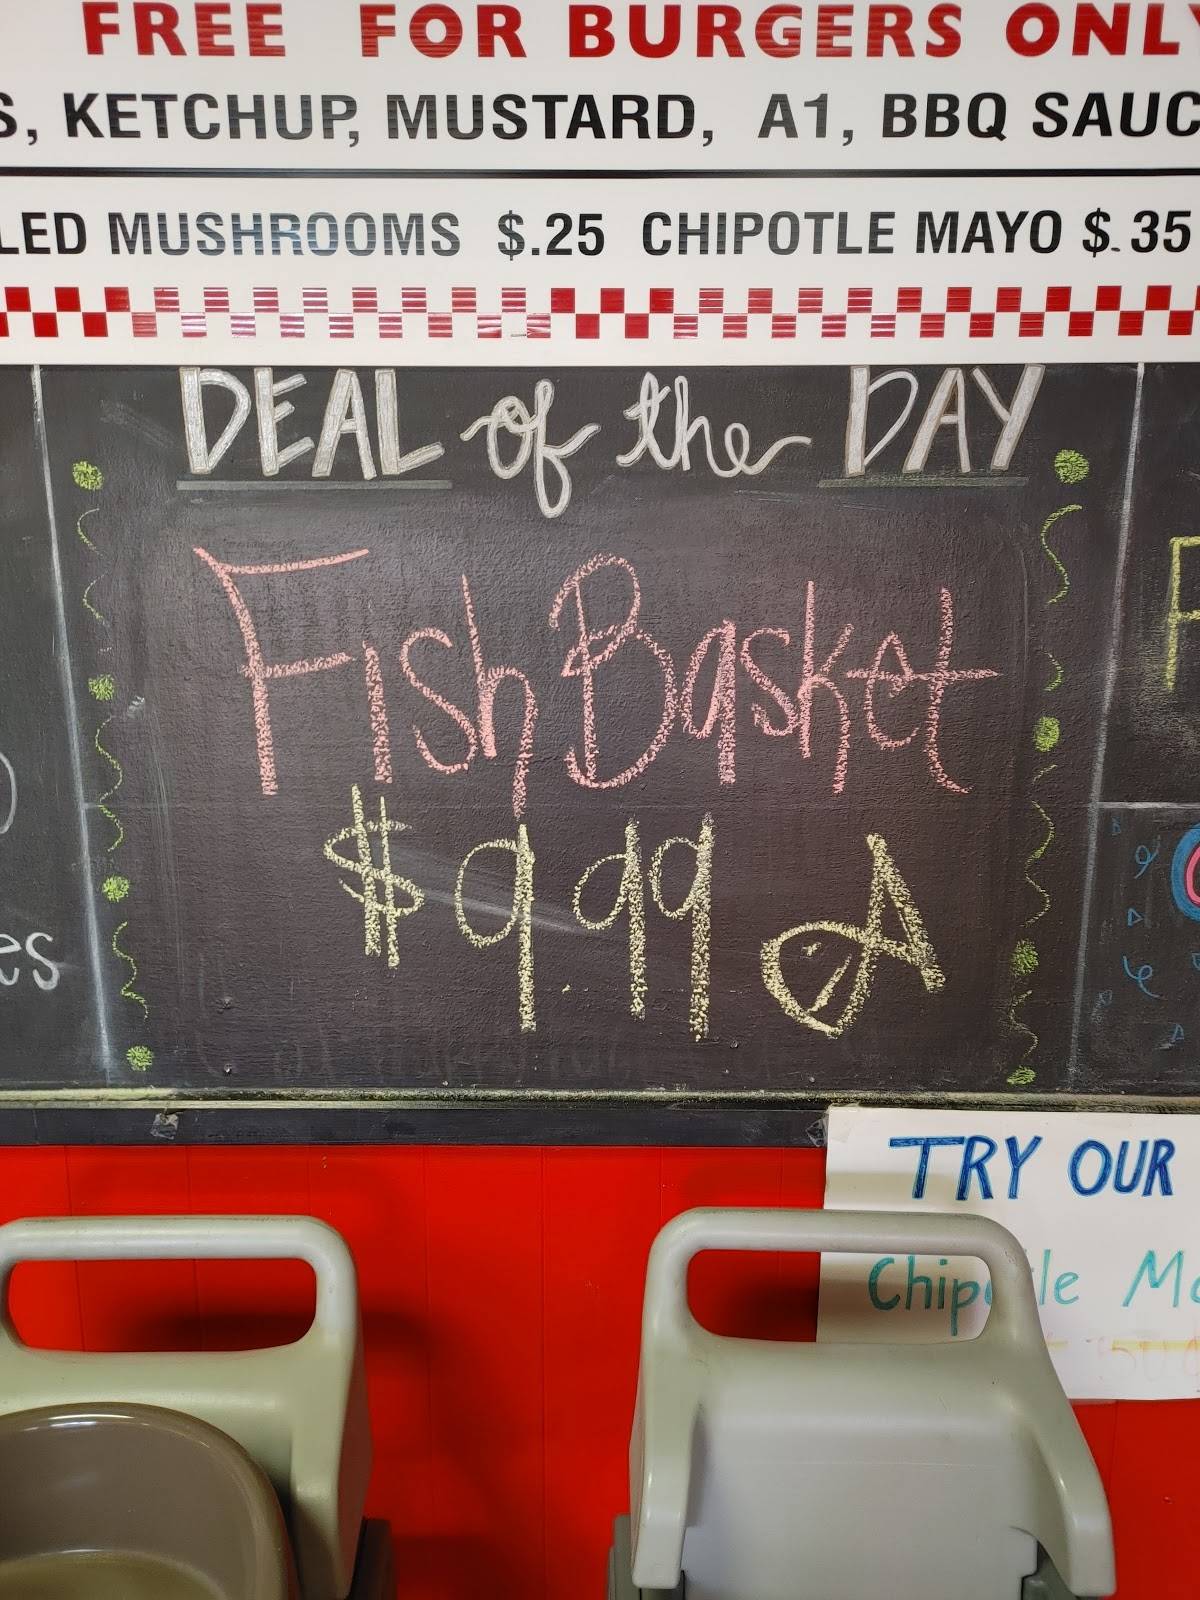 FREE FOR BURGERS ONLY
S, KETCHUP, MUSTARD, A1, BBQ SAUC
LED MUSHROOMS $.25 CHIPOTLE MAYO $.35
DEAL of the DAY
Fish Basket
$9.99
es
TRY OUR